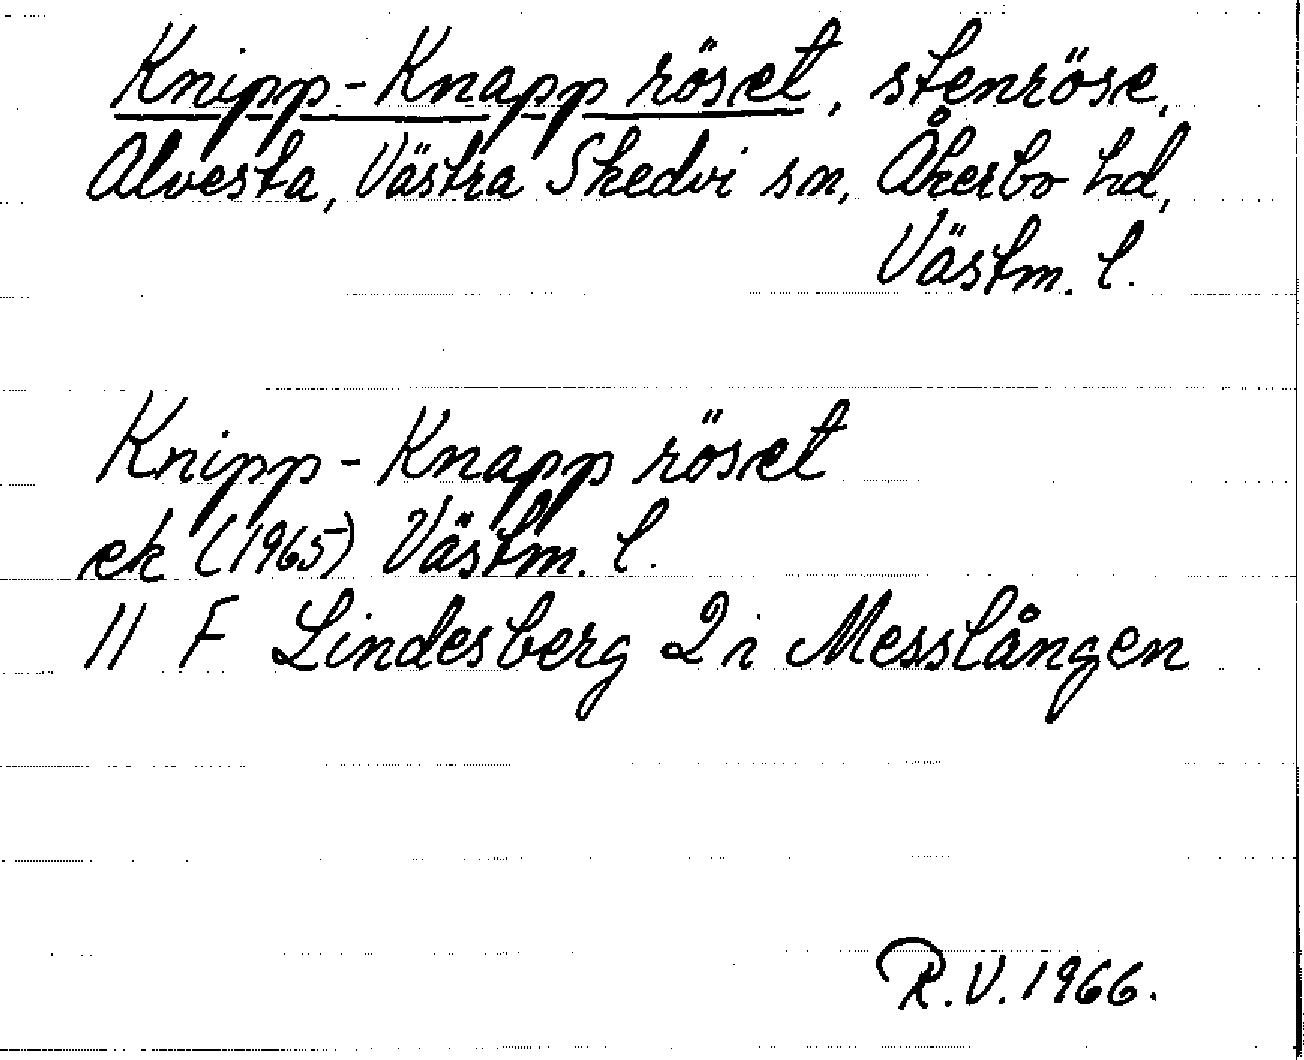 Knipp-Knapp röset, stenröse,
Alvesta, Västra Skedvi sn, Åkerbo hd,
Västm. l.
Knipp-Knapp röset
ek (1965) Västm. l.
11 F Lindesberg 2 i Messlången
R.V. 1966.